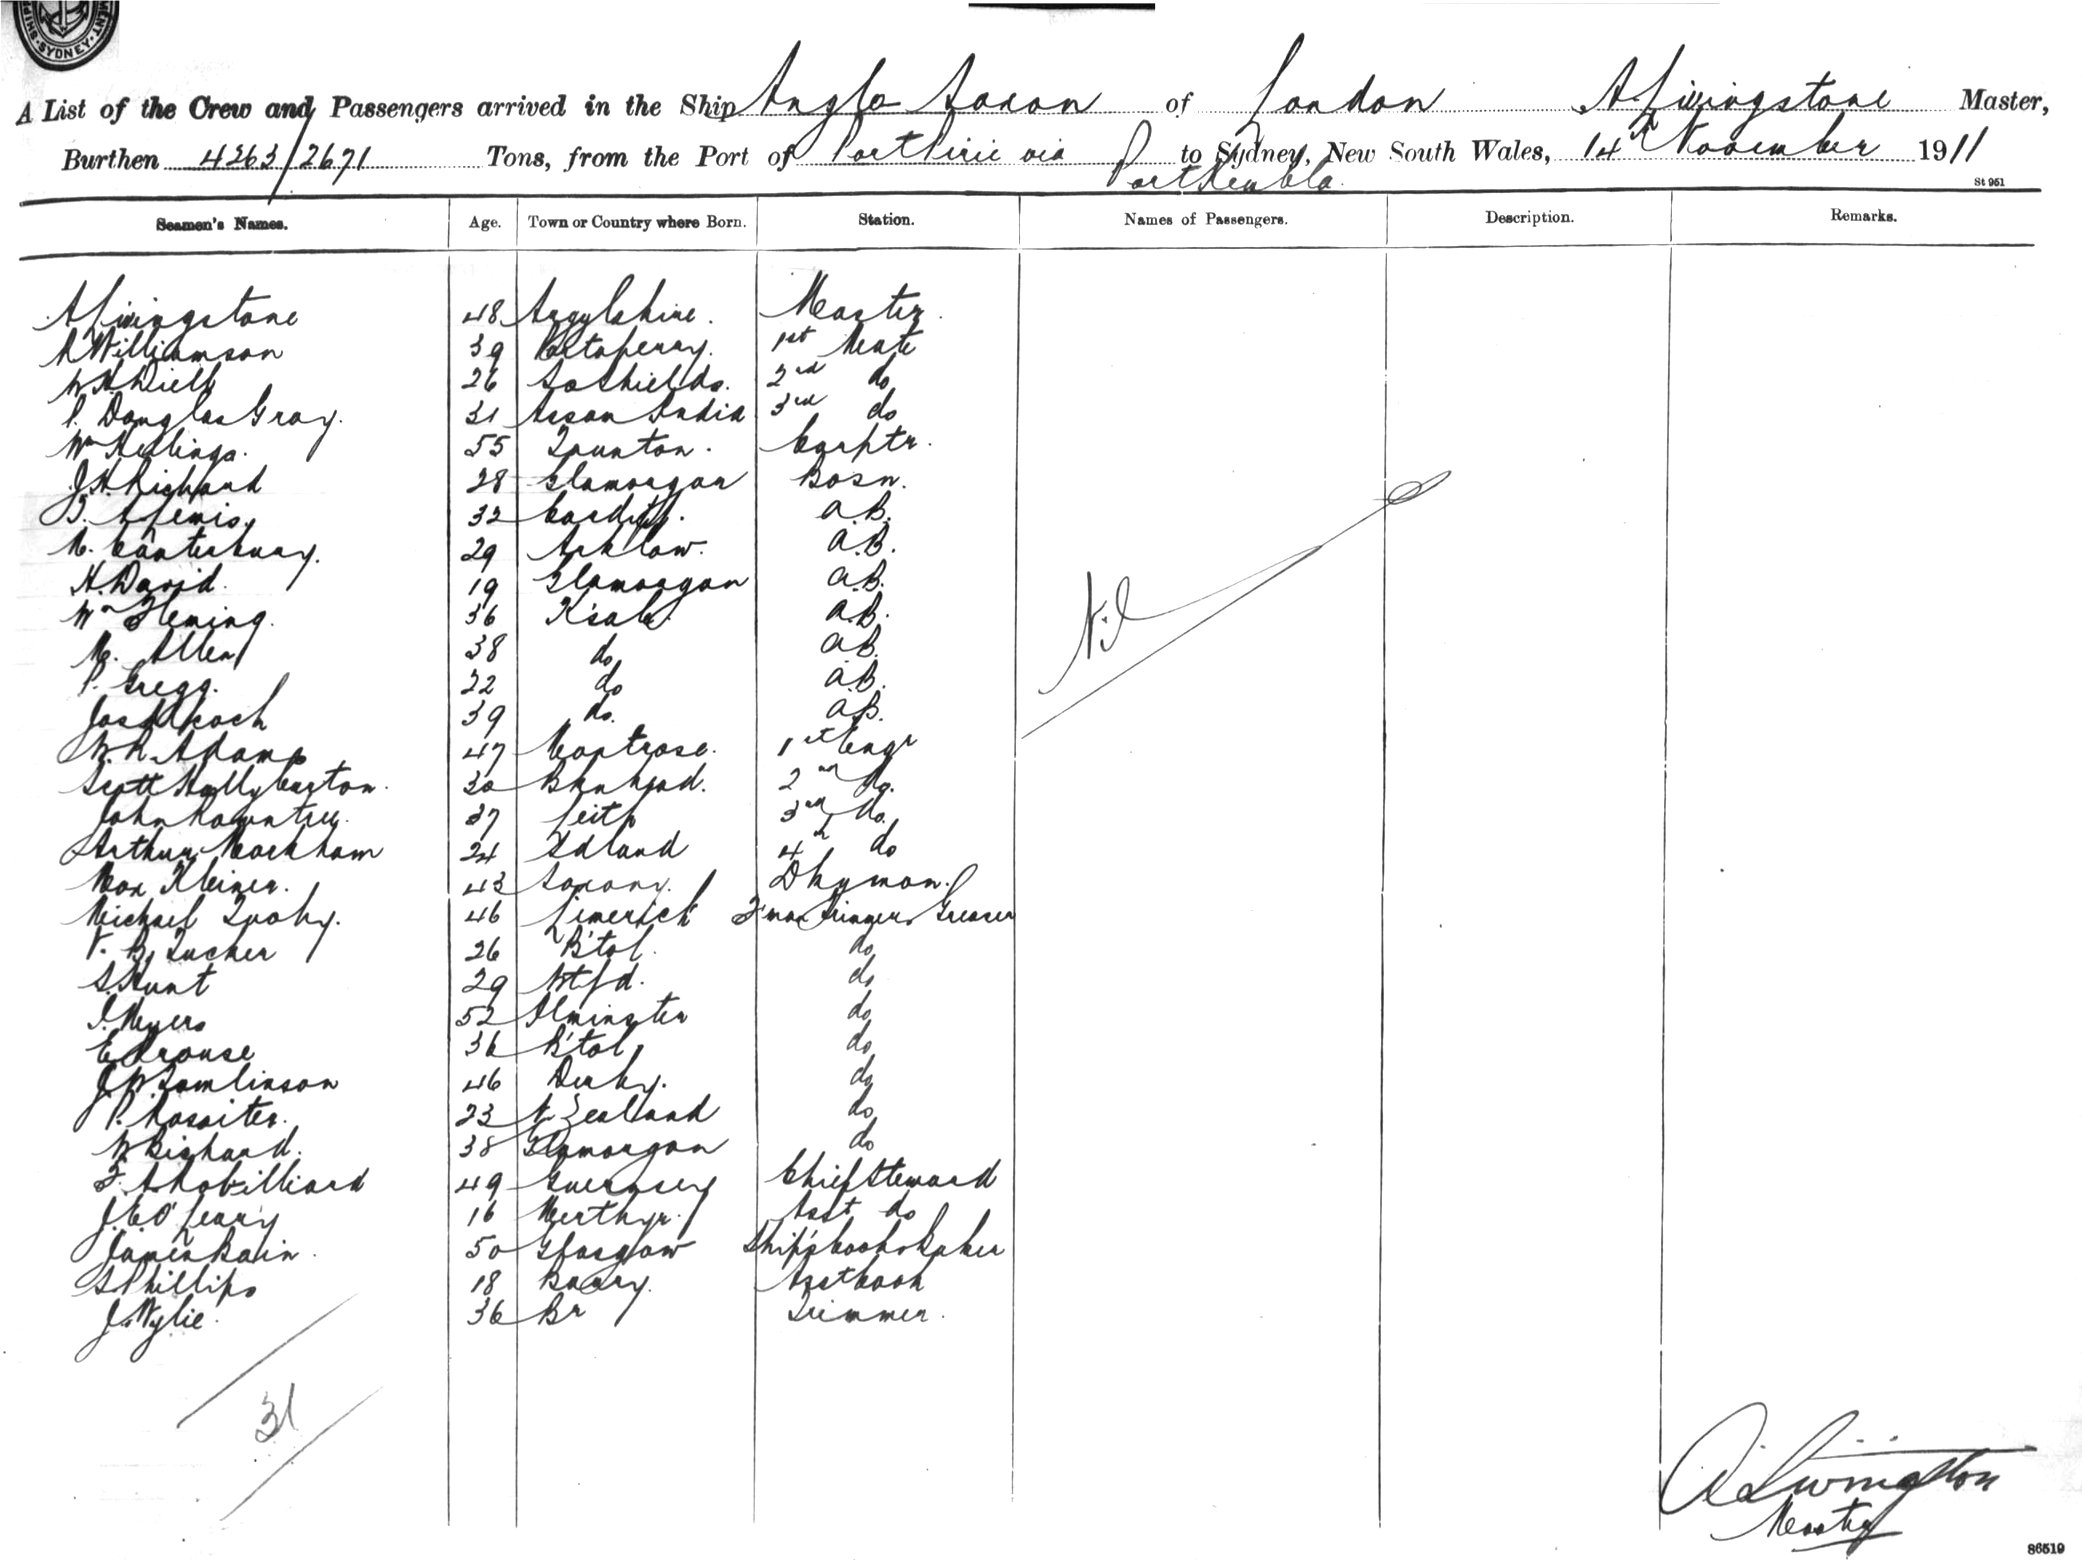 SYDNEY
A List of the Crew and Passengers arrived in the Ship Anglo Saxon of London A Livingstone Master,
Burthen 4263/2671 Tons, from the Port of Port Pirie via Port Kembla to Sydney, New South Wales, 14th November 1911
St 951
Seamen's Names. Age. Town or Country where Born. Station. Names of Passengers. Description. Remarks.
A Livingstone 48 Argylshire. Master.
R Williamson 39 1st Mate
26 So Shields. 2nd do
P. Douglas Gray. 31 Assam India 3rd do
Wm 55 Taunton. Carptr.
J. H. Richard 28 Glamorgan Bosn.
A Lewis. 32 Cardiff. A.B.
M. Canterbury. 29 Arklow. A.B.
H. David. 19 Glamorgan A.B.
Wm Fleming. 36 K'sale. A.B.
M. Allen 38 do A.B.
P. Gregg. 22 do A.B.
39 do. A.B.
W. R. Adams 47 Montrose. 1st Engr
Scott Hallyburton. 30 B'knhead. 2nd do.
John Rowntree. 37 Leith 3rd do.
Arthur Markham 24 4th do
Max Kleiner. 43 Saxony. Dkyman.
Michael Tuohy. 46 Limerick F'man Trimmer Greaser
V. B. Tucker 26 B'tol. do
S. Hunt 29 Wtfd. do
J. Meyers 52 Ilminster do
E Krouse 36 B'tol do
J. W. Tomlinson 46 Derby. do
P. Rossiter. 23 N. Zealand do
W Richard. 38 Glamorgan do
F. A Robilliard 49 Guernsey Chief Steward
J. C. O'Leary 16 Merthyr. Asst do
James Bain. 50 Glasgow Ship's Cook & Baker
S Phillips 18 Barry. Asst Cook
J. Wylie. 36 Br Trimmer.
Nil
31
A Livingston
Master
86519